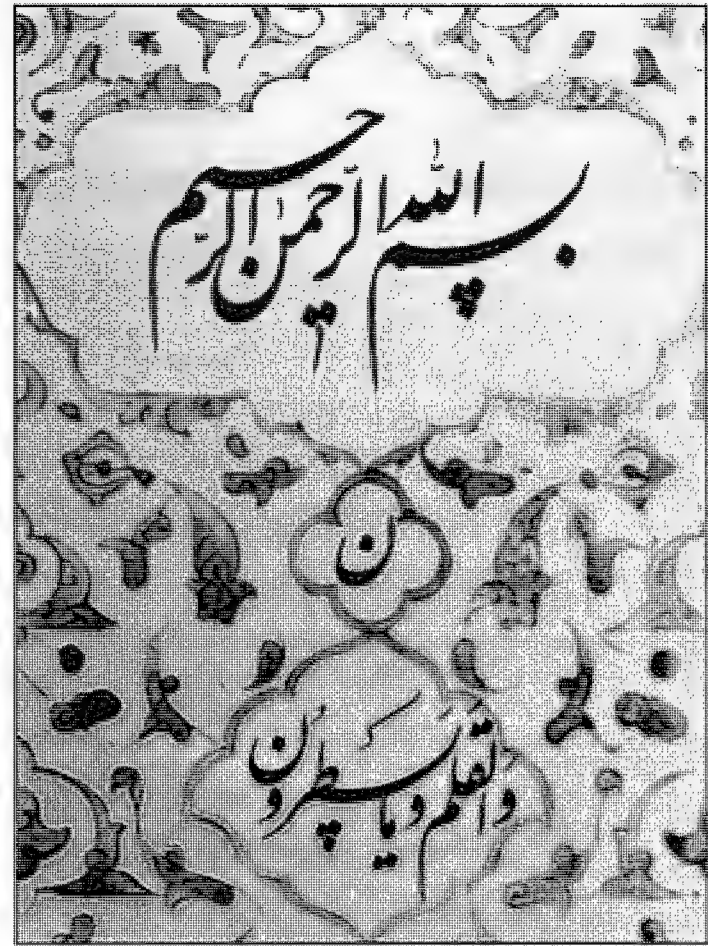 بسم الله الرحمن الرحيم
ن
والقلم وما يسطرون